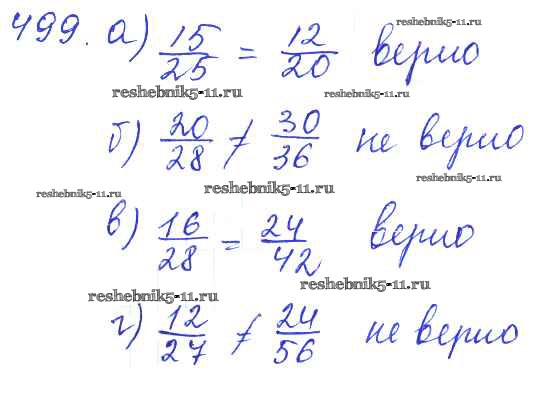 499. а) 15/25 = 12/20 верно
reshebnik5-11.ru
reshebnik5-11.ru
reshebnik5-11.ru
б) 20/28 ≠ 30/36 не верно
reshebnik5-11.ru
reshebnik5-11.ru
reshebnik5-11.ru
в) 16/28 = 24/42 верно
reshebnik5-11.ru
reshebnik5-11.ru
г) 12/27 ≠ 24/56 не верно